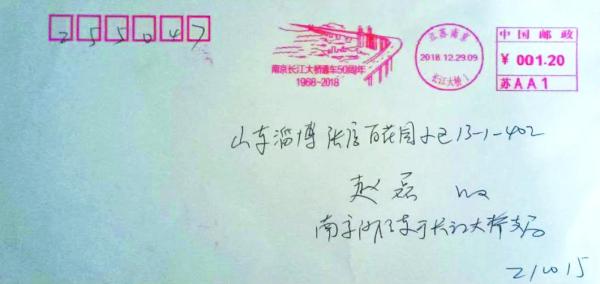 255047
南京长江大桥通车50周年
1968-2018
江苏南京
2018.12.29.09
长江大桥1
中国邮政
¥ 001.20
苏AA1
山东淄博张店百花园小区13-1-402
赵磊 收
南京 长江大桥支局
210015